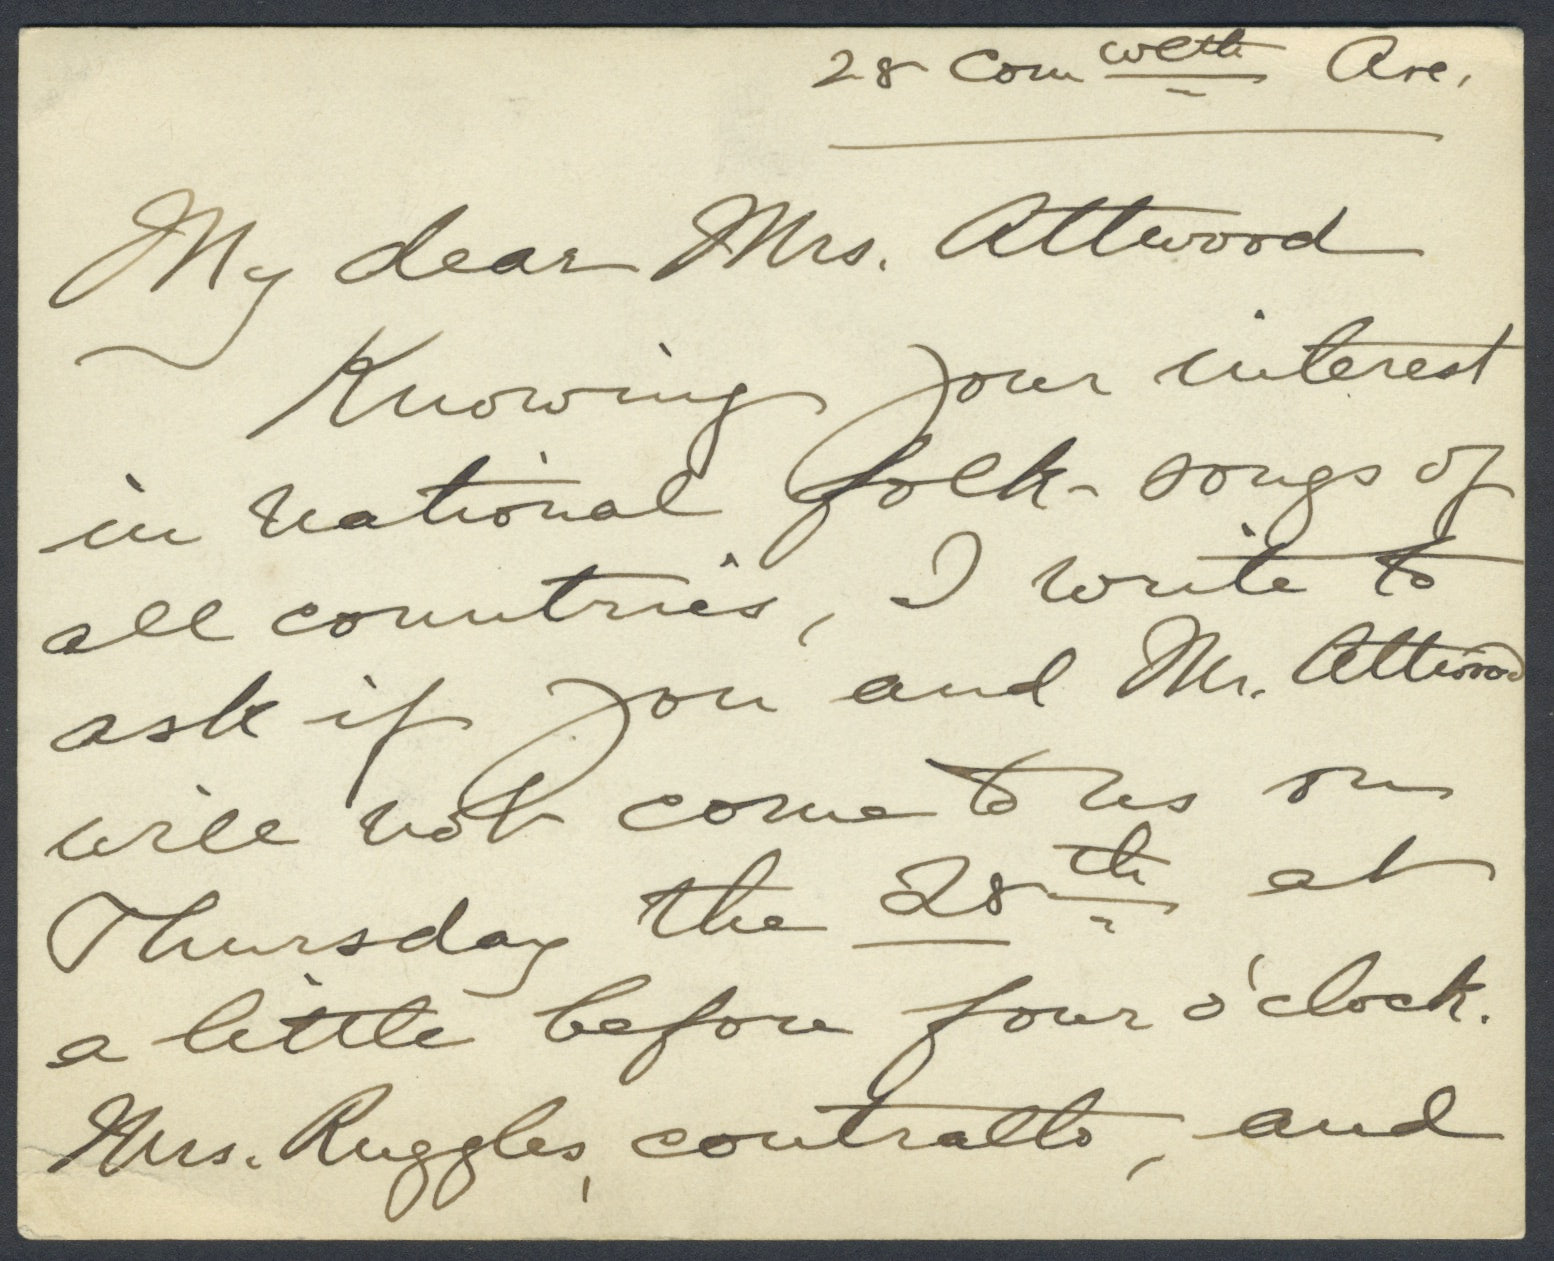 28 Comwelth Ave.
My dear Mrs. Attwood
Knowing your interest
in national folk-songs of
all countries, I write to
ask if you and Mr. Attwood
will not come to us on
Thursday the 28th at
a little before four o'clock.
Mrs. Ruggles, contralto, and